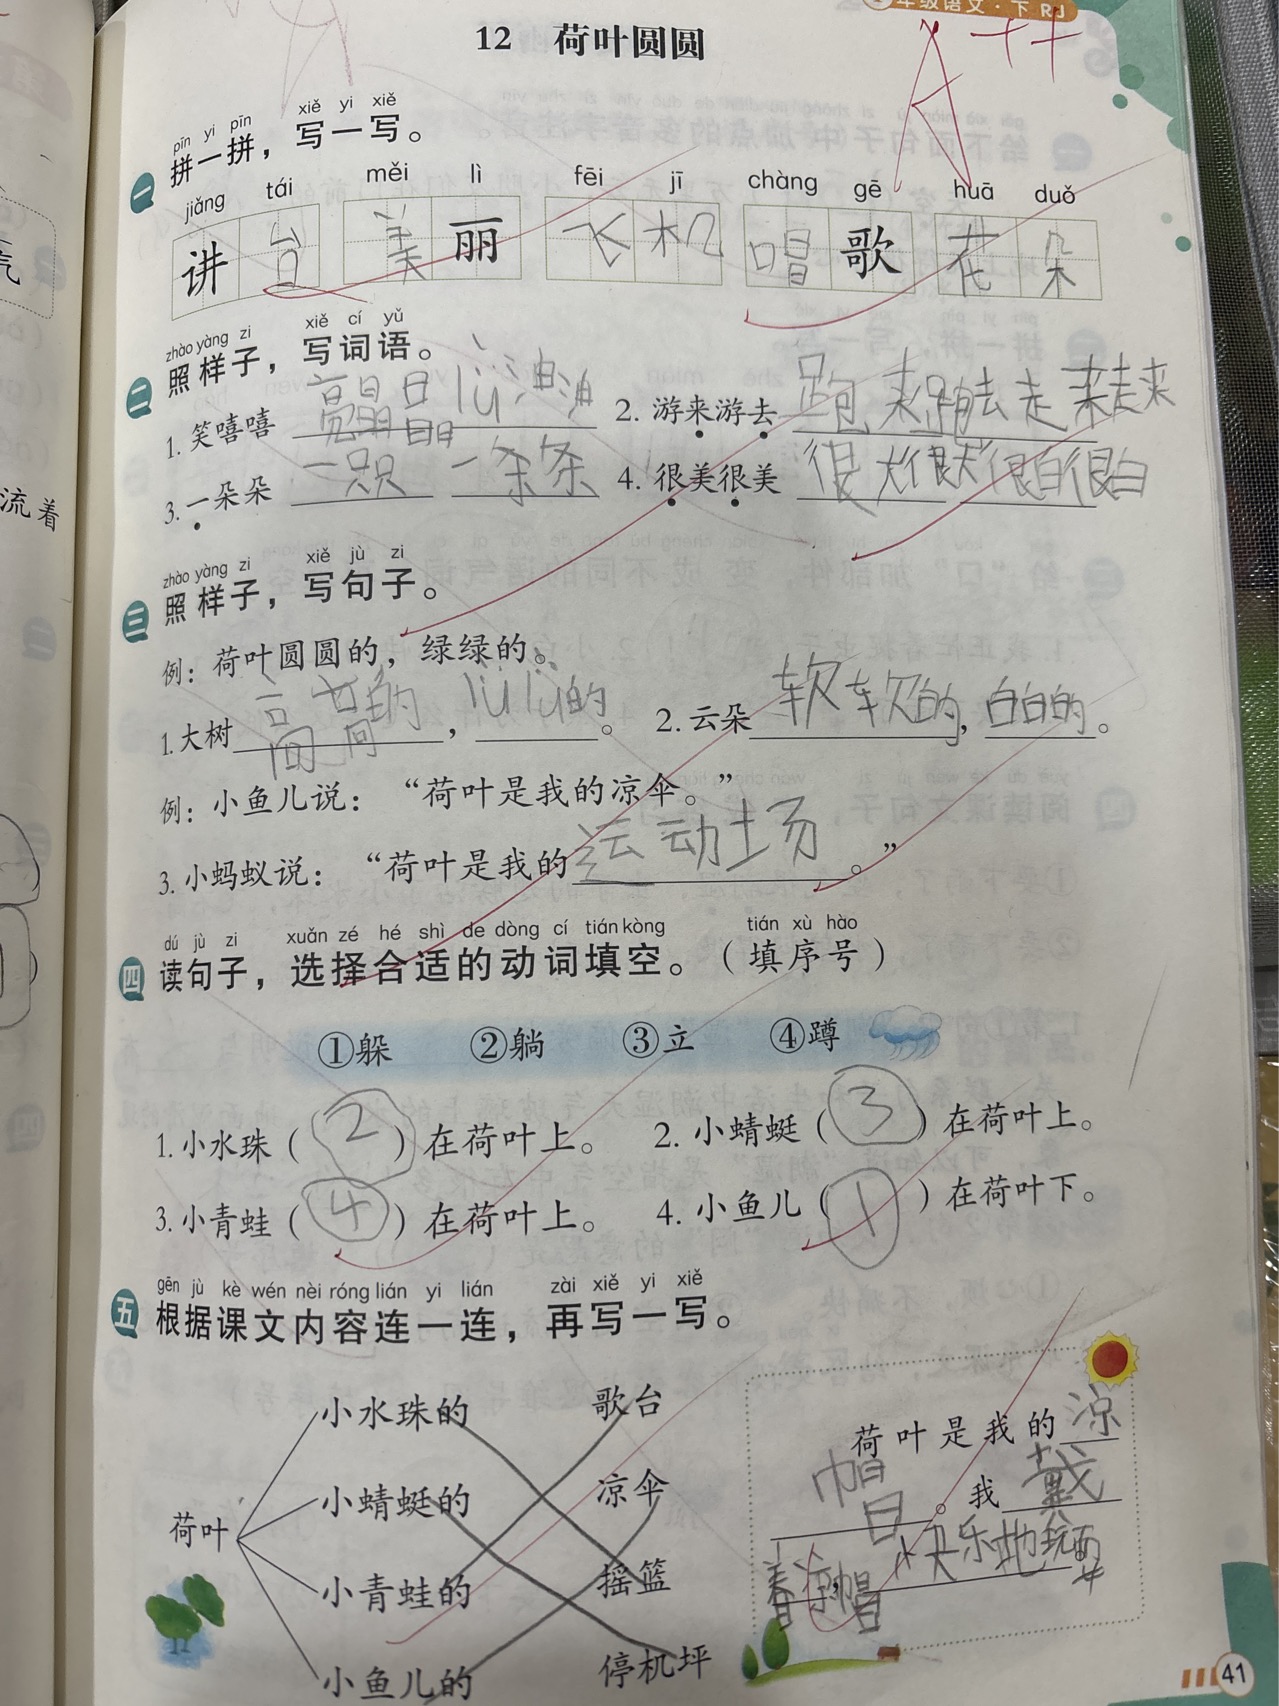 年级语文·下 RJ
A++
12 荷叶圆圆
pīn yi pīn xiě yi xiě
一 拼一拼，写一写。
jiǎng tái měi lì fēi jī chàng gē huā duǒ
讲台 美丽 飞机 唱歌 花朵
zhào yàng zi xiě cí yǔ
二 照样子，写词语。
1. 笑嘻嘻 亮晶晶 lǜ油油 2. 游来游去 跑来跑去 走来走来
3. 一朵朵 一只只 一条条 4. 很美很美 很大很大 很白很白
zhào yàng zi xiě jù zi
三 照样子，写句子。
例：荷叶圆圆的，绿绿的。
1. 大树高高的，lǜ lǜ的。 2. 云朵软软的，白白的。
例：小鱼儿说：“荷叶是我的凉伞。”
3. 小蚂蚁说：“荷叶是我的运动场。”
dú jù zi xuǎn zé hé shì de dòng cí tián kòng tián xù hào
四 读句子，选择合适的动词填空。（填序号）
①躲 ②躺 ③立 ④蹲
1. 小水珠（②）在荷叶上。 2. 小蜻蜓（③）在荷叶上。
3. 小青蛙（④）在荷叶上。 4. 小鱼儿（①）在荷叶下。
gēn jù kè wén nèi róng lián yi lián zài xiě yi xiě
五 根据课文内容连一连，再写一写。
荷叶
小水珠的 歌台
小蜻蜓的 凉伞
小青蛙的 摇篮
小鱼儿的 停机坪
荷叶是我的凉
帽。我戴
着凉帽快乐地玩耍
41
流着
气